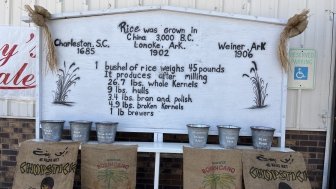 Rice was grown in
China 3,000 B.C.
Charleston, S.C.
1685
Lonoke, Ark.
1902
Weiner, Ark
1906
1 bushel of rice weighs 45 pounds
It produces after milling
26.7 lbs. whole Kernels
9 lbs. hulls
3.4 lbs. bran and polish
4.9 lbs. broken Kernels
1 lb brewers
y's
ale
CHOPSTICK